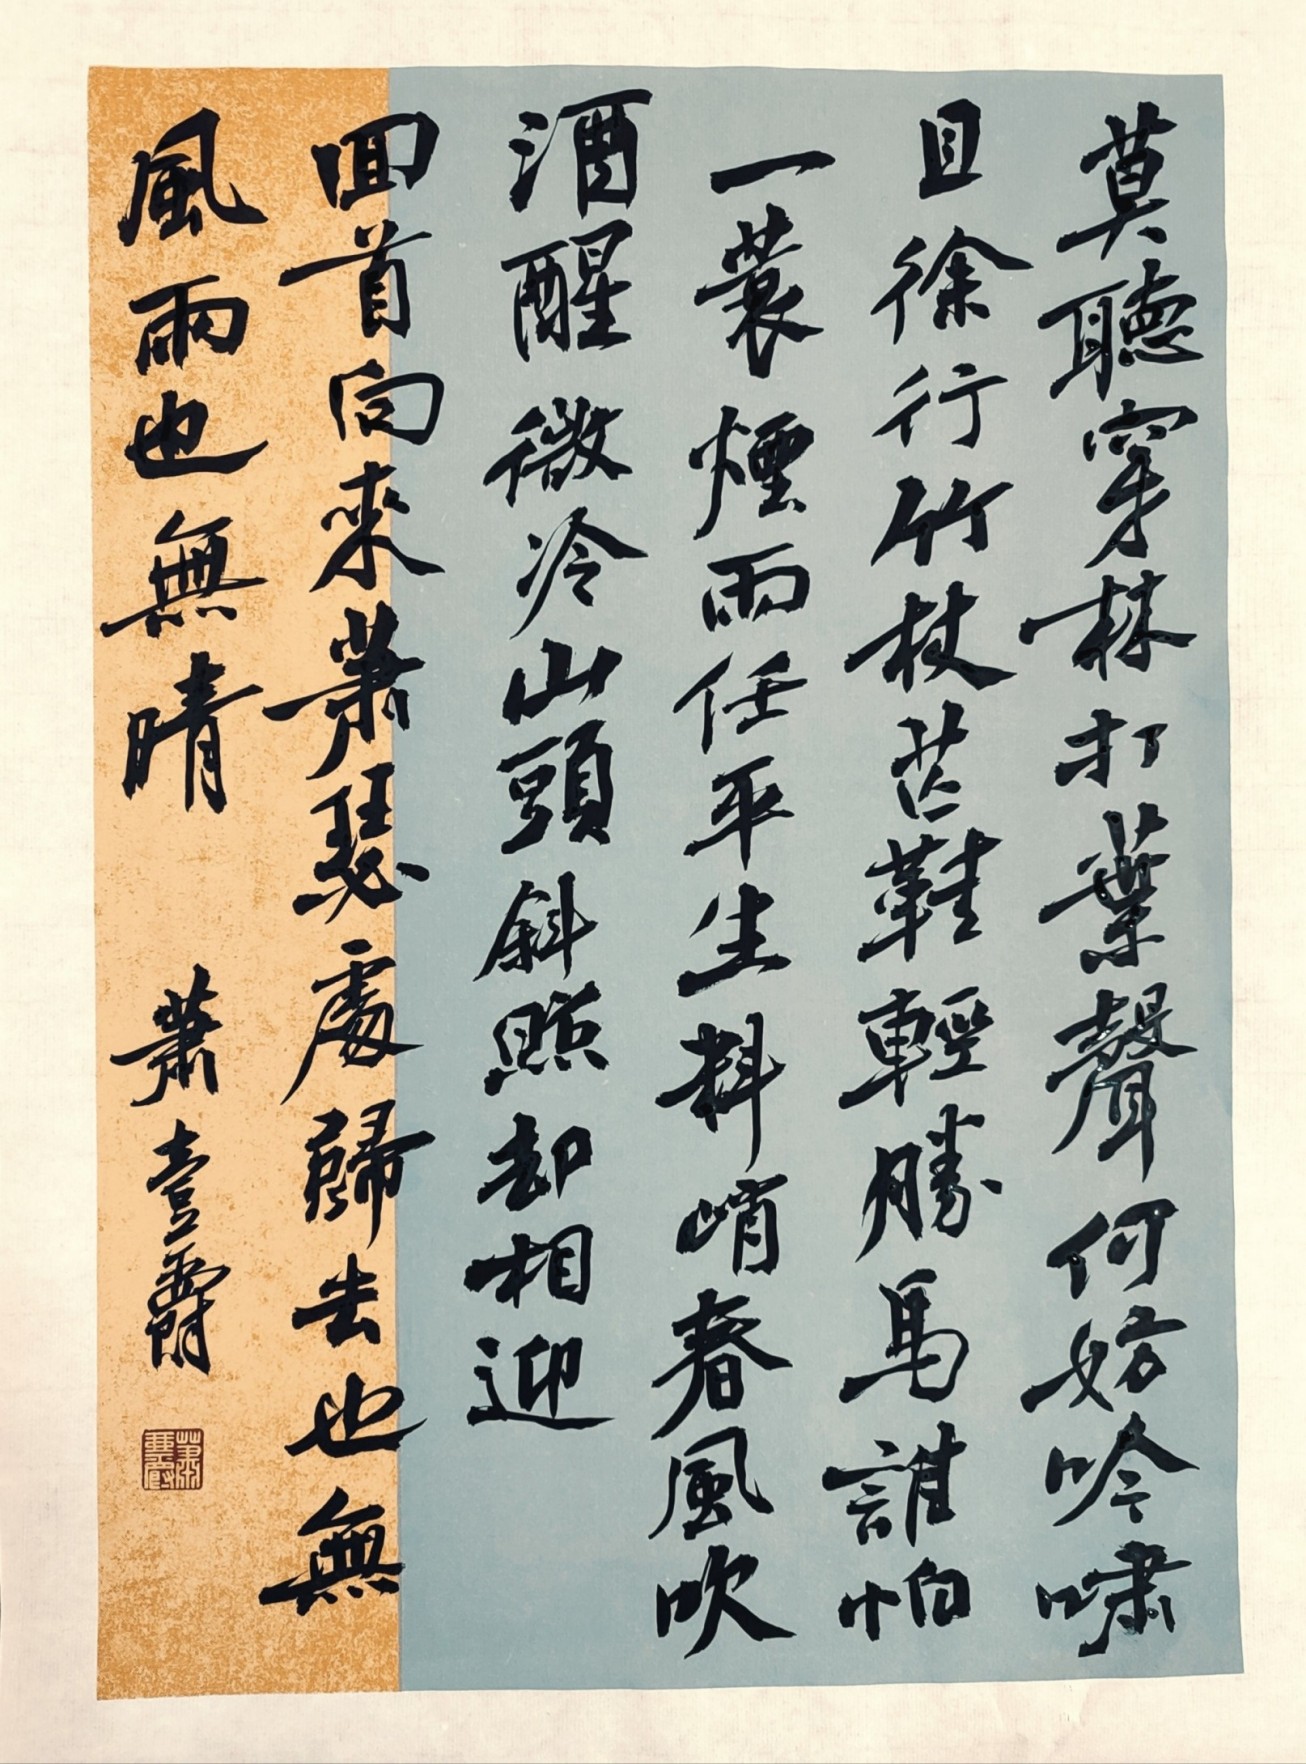 莫聽穿林打葉聲何妨吟嘯
且徐行竹杖芒鞋輕勝馬誰怕
一蓑煙雨任平生料峭春風吹
酒醒微冷山頭斜照却相迎
回首向來蕭瑟處歸去也無
風雨也無晴 蕭壹爵